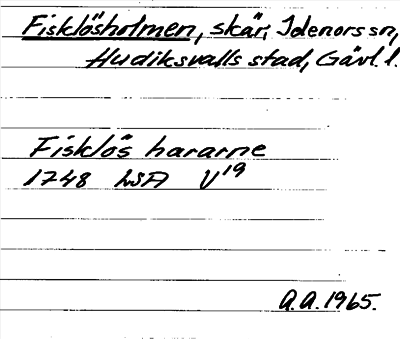 Fisklösholmen, skär, Idenors sn,
Hudiksvalls stad, Gävl. l.
Fisklös hararne
1748 LSA V¹⁹
A.A. 1965.